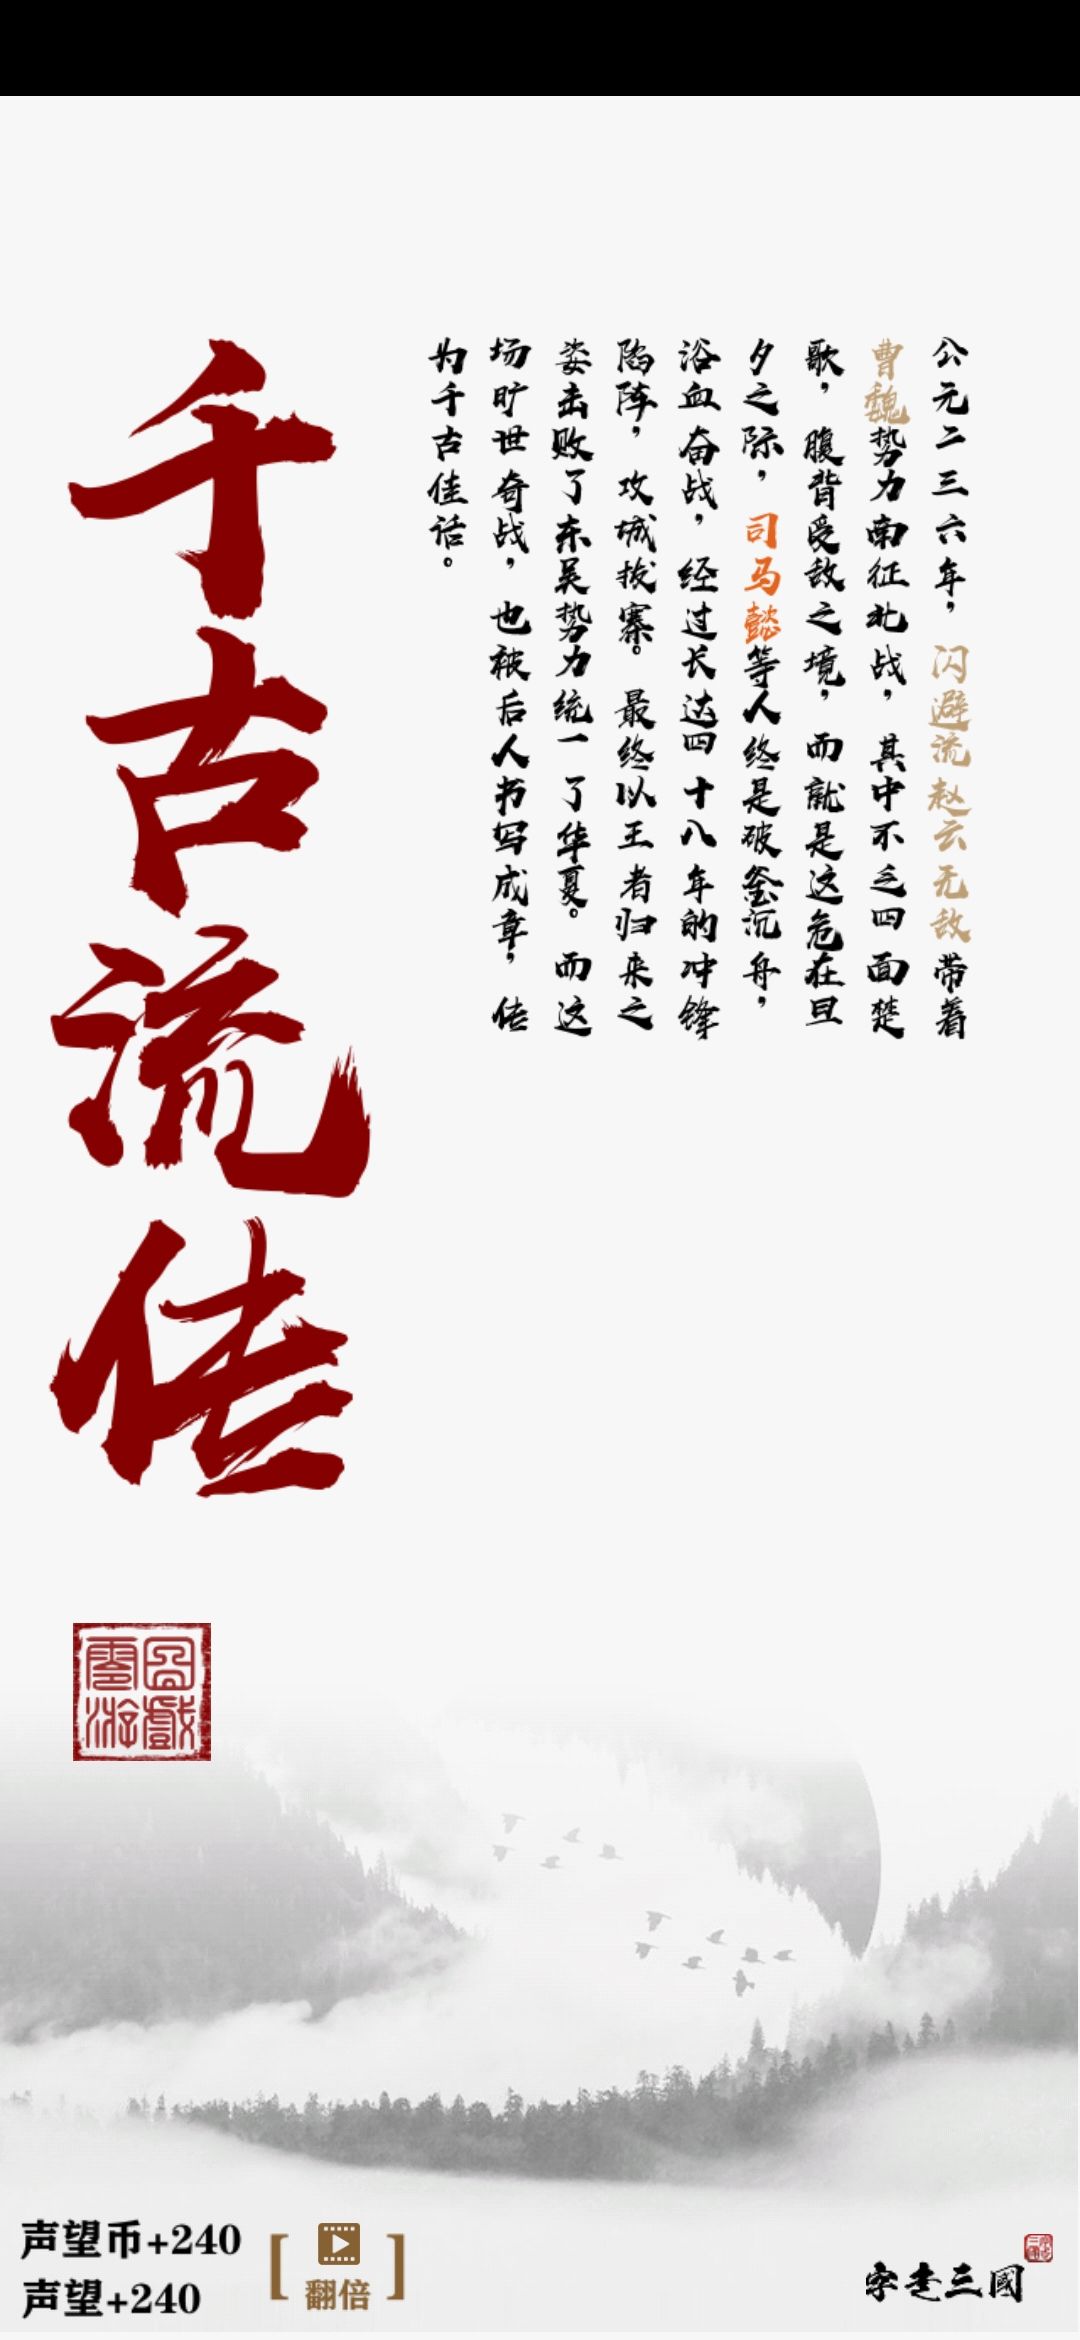 公元二三六年，闪避流赵云无敌带着
曹魏势力南征北战，其中不乏四面楚
歌，腹背受敌之境，而就是这危在旦
夕之际，司马懿等人终是破釜沉舟，
浴血奋战，经过长达四十八年的冲锋
陷阵，攻城拔寨。最终以王者归来之
姿击败了东吴势力统一了华夏。而这
场旷世奇战，也被后人书写成章，传
为千古佳话。
千古流传
声望币+240
声望+240
[翻倍]
字走三國